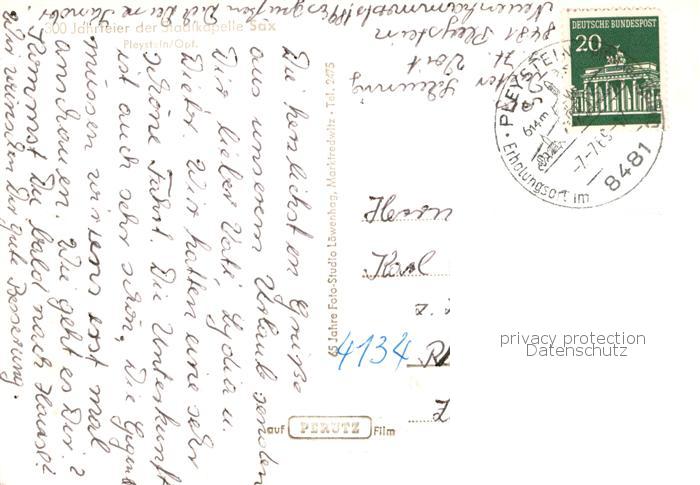 300 Jahrfeier der Stadtkapelle Sax
Pleystein/Opf.
Die herzlichsten Grüße
aus unserem Urlaub senden
Dir lieber Vati, Lydia u.
Dieter. Wir hatten eine sehr
schöne Fahrt. Die Unterkunft
ist auch sehr schön, Die Gegend
müssen wir uns erst mal
anschauen. Wie geht es Dir?
Kommst Du bald nach Hause?
Wir wünschen Dir gute Besserung.
8481 Pleystein
65 Jahre Foto-Studio Löwenhag, Marktredwitz · Tel. 2475
auf PERUTZ Film
DEUTSCHE BUNDESPOST
20
PLEYSTEIN
614m
Erholungsort im
8481
Herrn
Karl
4134
privacy protection
Datenschutz